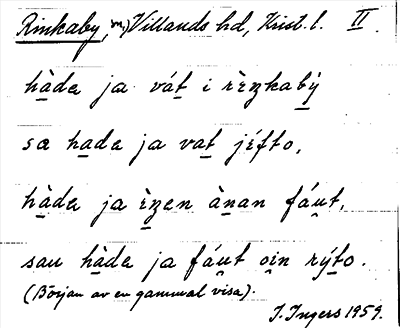 Rinkaby, (m.) Villands hd, Krist. l. II.
hàda ja vát i rèŋkabý
sa hada ja vat jífto,
hàda ja èŋen ànan fáut,
sau hàda ja fáut oin rýto.
(Början av en gammal visa).
I. Ingers 1959.